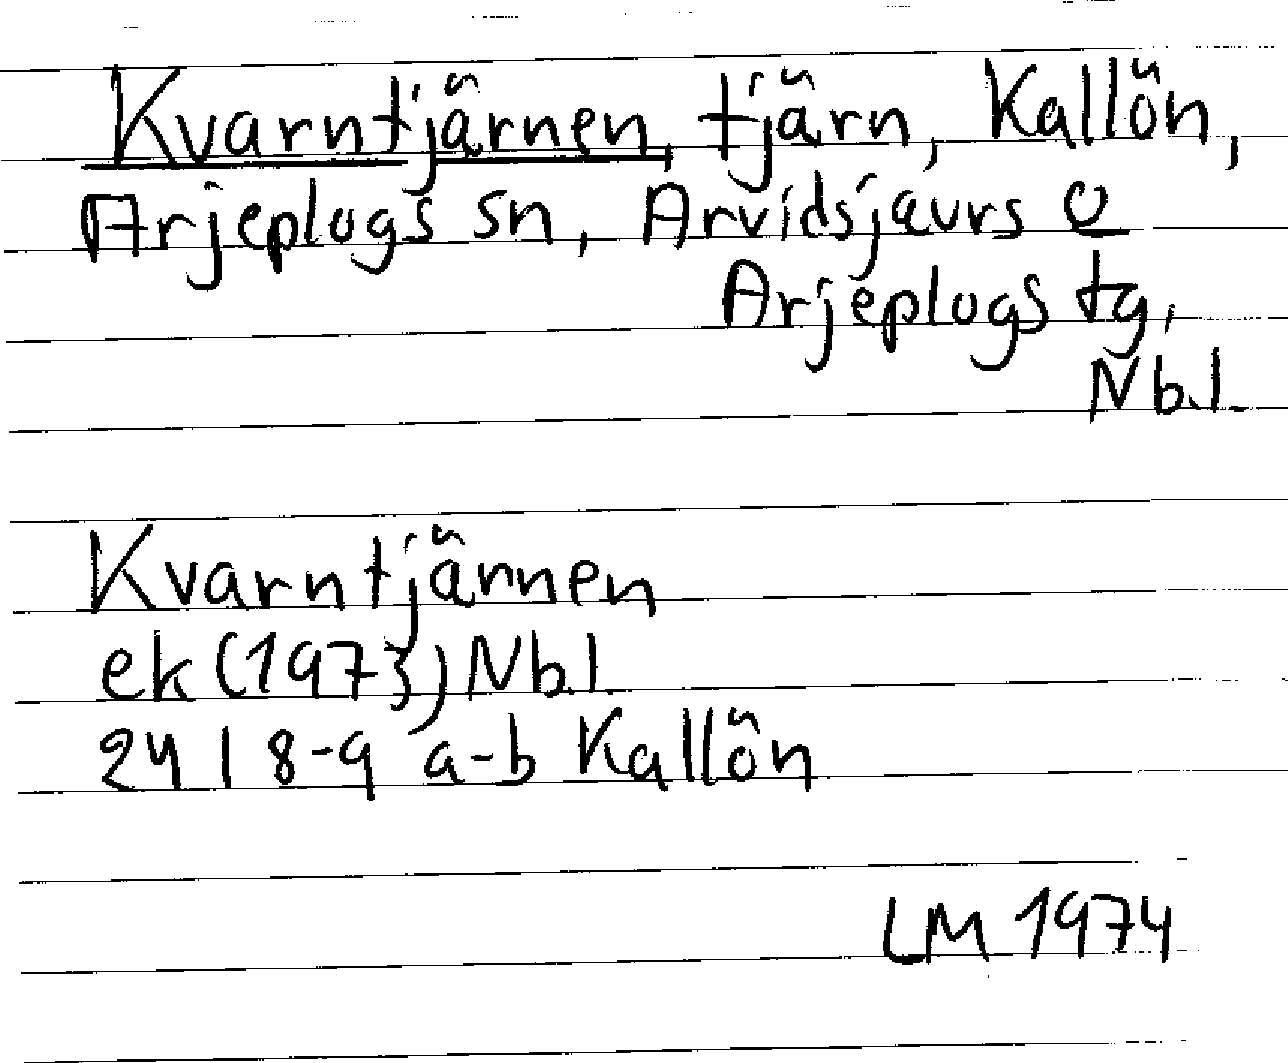 Kvarntjärnen, tjärn, Kallön,
Arjeplogs sn, Arvidsjaurs o
Arjeplogs tg,
Nb.l.
Kvarntjärnen
ek (1973) Nb.l
24 I 8-9 a-b Kallön
LM 1974